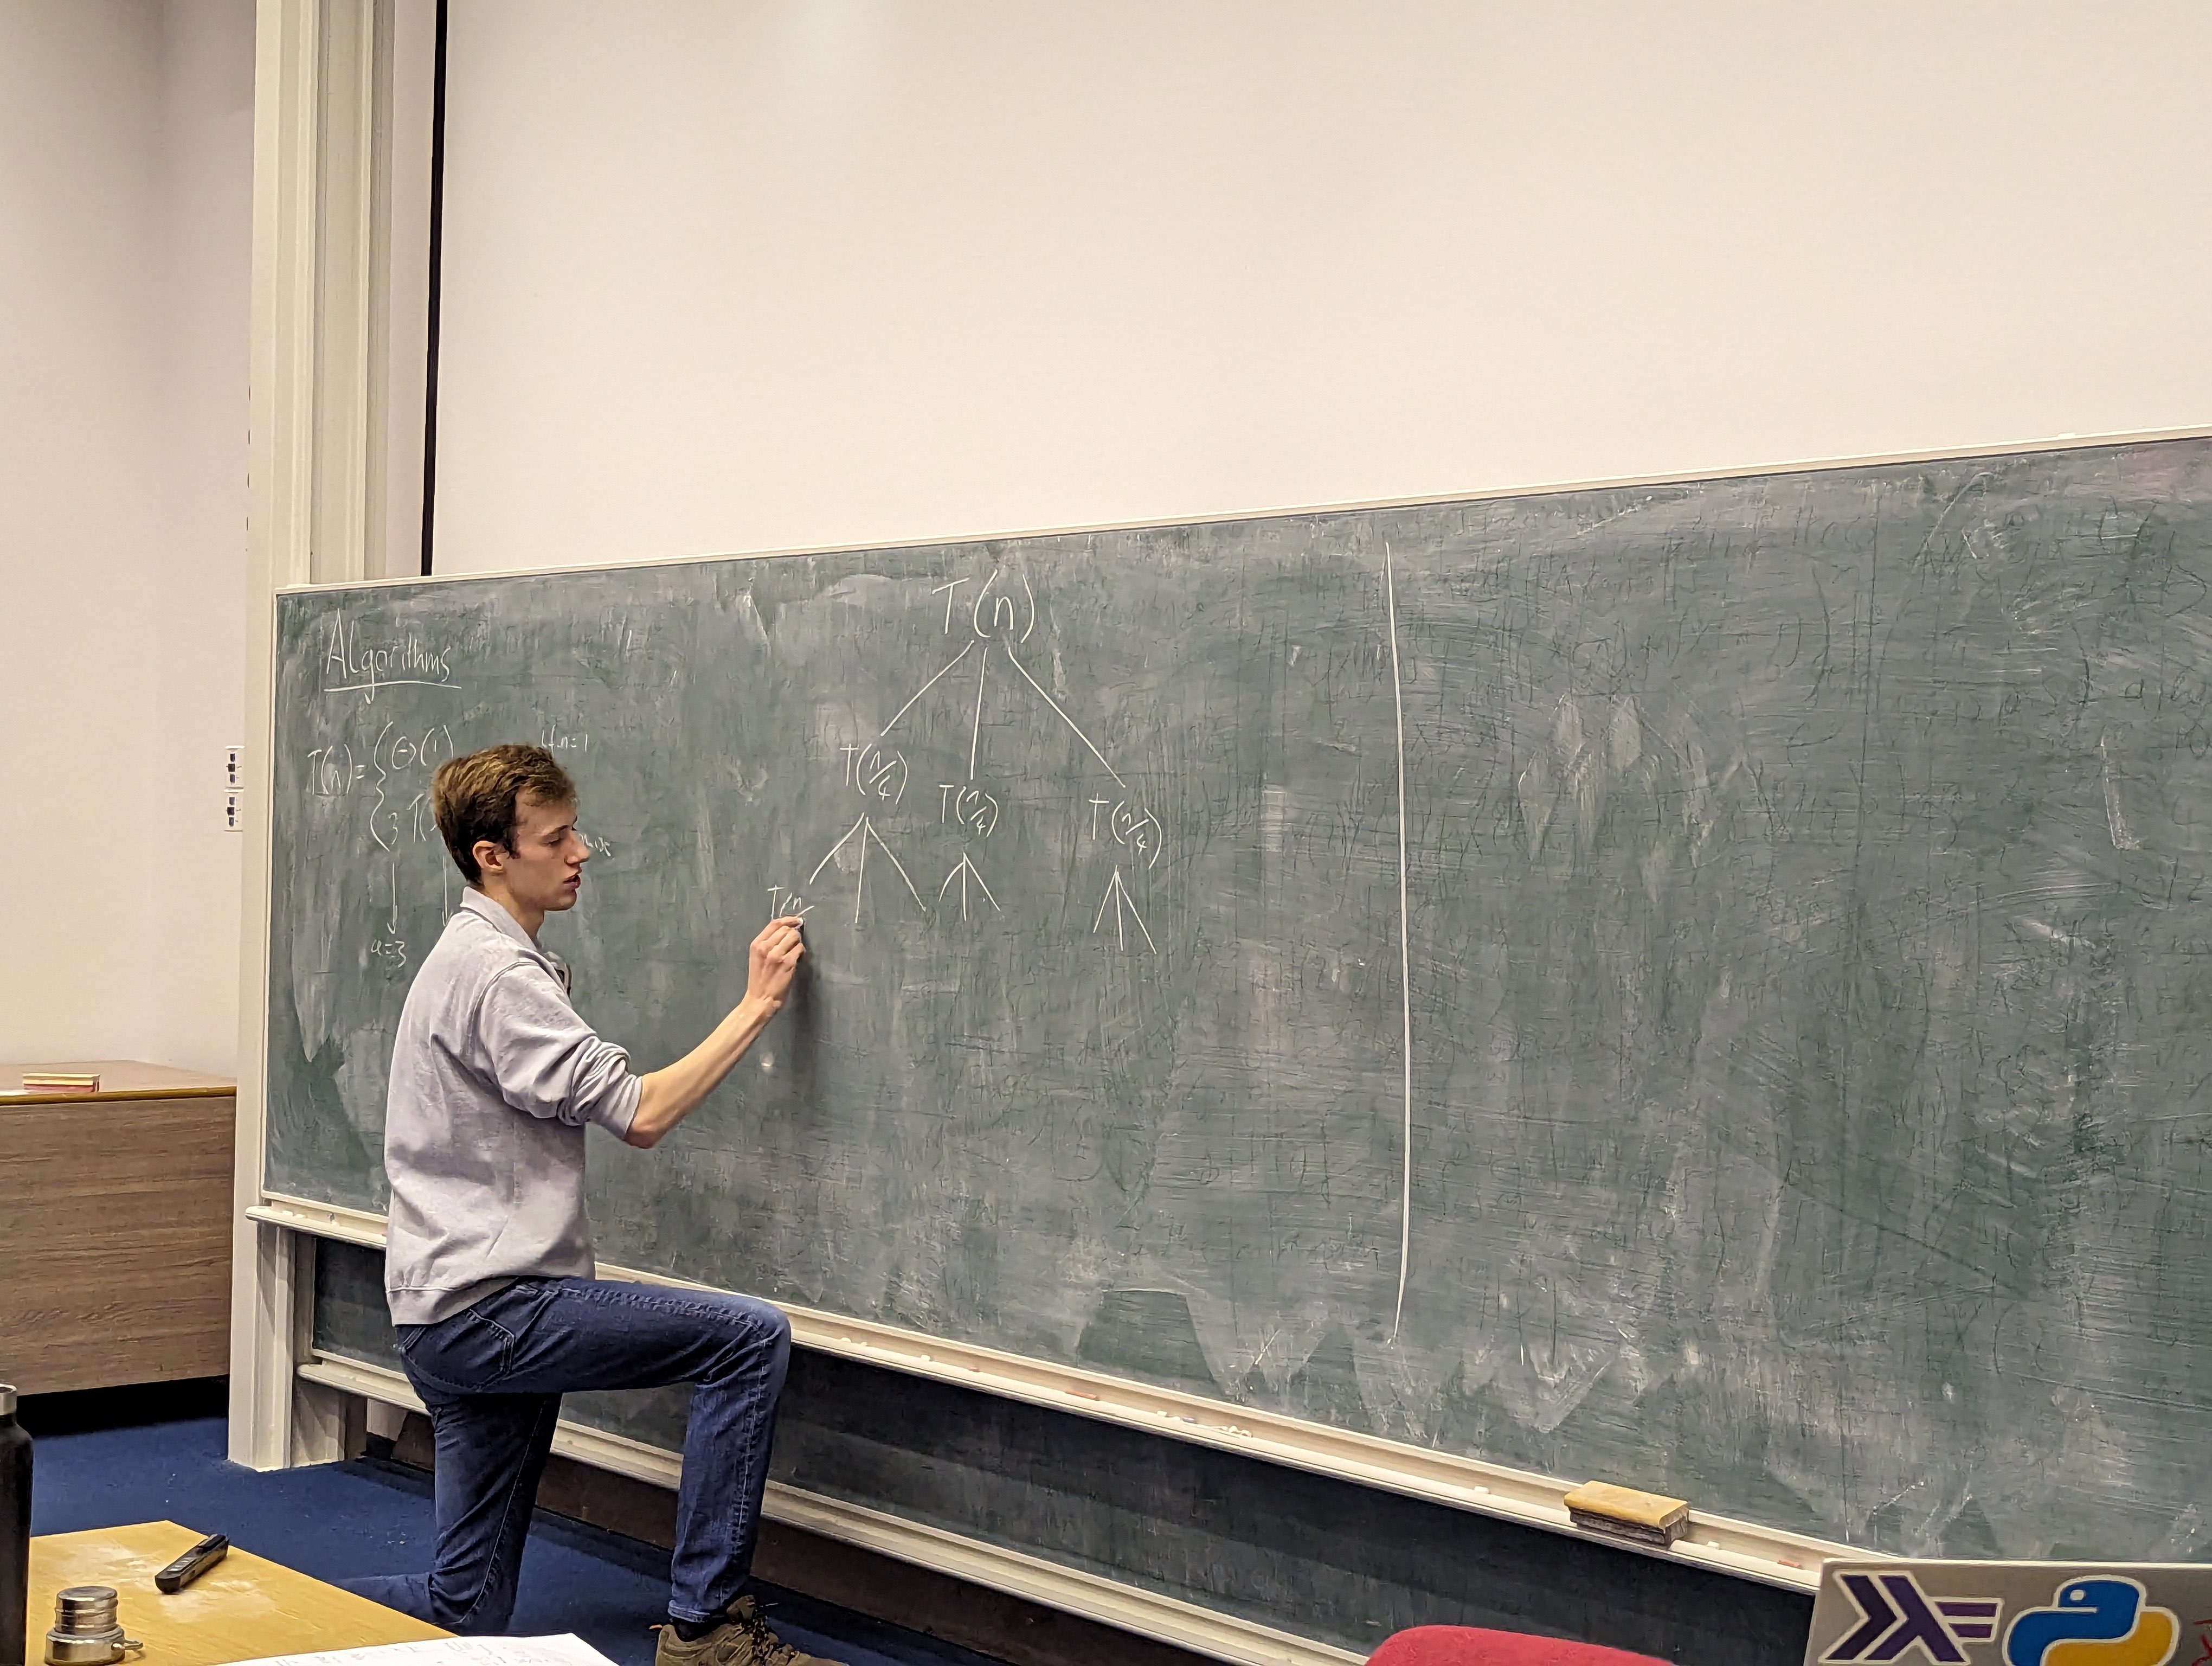 Algorithms
T(n) = { Θ(1) if n=1
3 T(
a=3
T(n)
T(n/4) T(n/4) T(n/4)
T(n